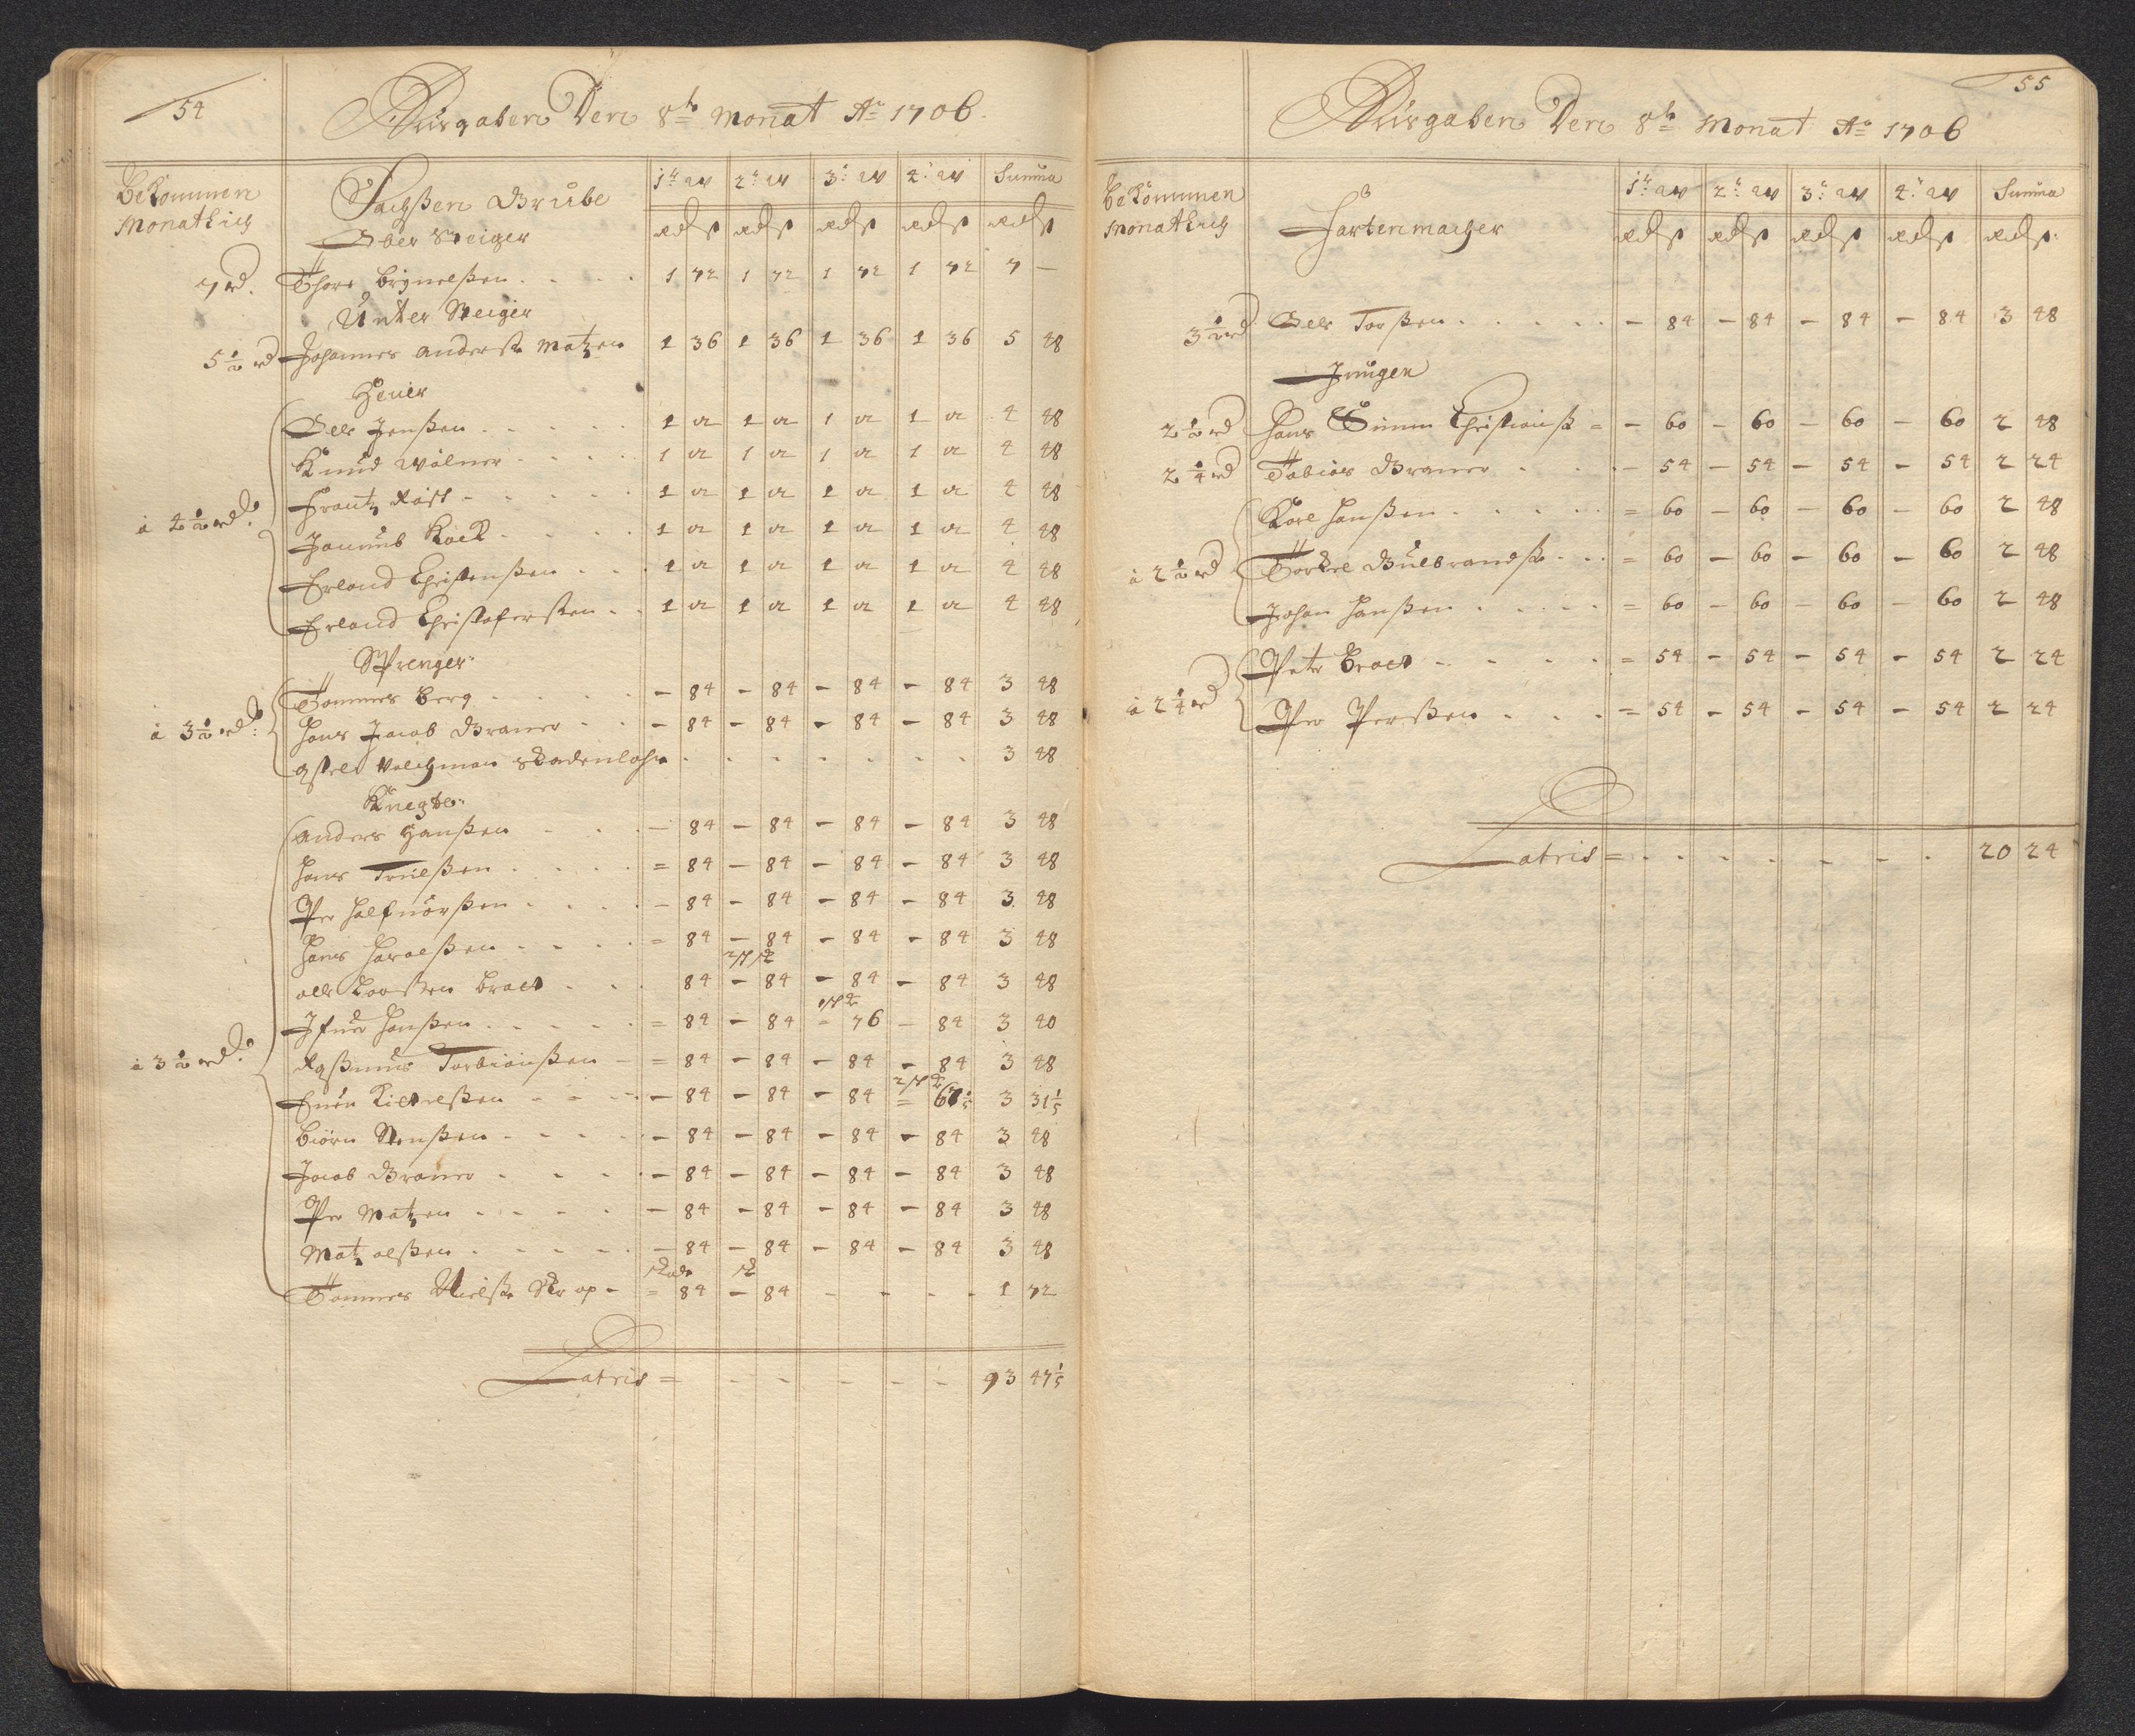 54
Ausgaben Den 8te Monat Ao 1706.
Bekommen Monatlich
Sachßen Grube
1te W 2te W 3te W 4te W Summa
Ober Steiger
rd ß rd ß rd ß rd ß rd ß
7 rd. Thore Brynelßen 1 72 1 72 1 72 1 72 7 —
Unter Steiger
5 1/2 rd Johannes Anderß Matzen 1 36 1 36 1 36 1 36 5 48
Heuer
Oele Jenßen 1 12 1 12 1 12 1 12 4 48
Knud Wolner 1 12 1 12 1 12 1 12 4 48
Frantz Röst 1 12 1 12 1 12 1 12 4 48
à 4 1/2 rd.
Johanus Kock 1 12 1 12 1 12 1 12 4 48
Erland Christenßen 1 12 1 12 1 12 1 12 4 48
Erland Christofersten 1 12 1 12 1 12 1 12 4 48
Sprenger
Tommes Berg — 84 — 84 — 84 — 84 3 48
à 3 1/2 rd. Hans Jacob Braner — 84 — 84 — 84 — 84 3 48
Volchman Skadenlohn 3 48
Knegte
Anders Hanßen — 84 — 84 — 84 — 84 3 48
Hans Truelßen = 84 — 84 — 84 — 84 3 48
Per Halfuorßen — 84 — 84 — 84 — 84 3 48
Hans Haraelßen = 84 — 84 — 84 — 84 3 48
Oele Laarßen Braek 84 — 84 — 84 — 84 3 48
Ifuer Hanßen = 84 — 84 — 76 — 84 3 40
à 3 1/2 rd. Raßmus Torbiönßen = 84 — 84 — 84 — 84 3 48
Euen Kittelßen — 84 — 84 — 84 = 67 1/5 3 31 1/5
Biörn Stenßen — 84 — 84 — 84 — 84 3 48
Jacob Braner — 84 — 84 — 84 — 84 3 48
Per Matzen — 84 — 84 — 84 — 84 3 48
Matz Oelßen — 84 — 84 — 84 — 84 3 48
Tommes Nielße Strop = 84 — 84 1 72
Latris = 93 47 1/5
55
Ausgaben Den 8te Monat Ao 1706
Bekommen Monatlich
Hartenmacher
1te W 2te W 3te W 4te W Summa
rd ß rd ß rd ß rd ß rd ß
3 1/2 rd Oele Torßen — 84 — 84 — 84 — 84 3 48
Jungen
2 1/2 rd Hans Simen Christianß = — 60 — 60 — 60 — 60 2 48
2 1/4 rd Tobias Braner — 54 — 54 — 54 — 54 2 24
Karl Hanßen = 60 — 60 — 60 — 60 2 48
à 2 1/2 rd Torkel Gulbrandß = 60 — 60 — 60 — 60 2 48
Johan Hanßen = 60 — 60 — 60 — 60 2 48
Peter Braek = 54 — 54 — 54 — 54 2 24
à 2 1/4 rd
Per Perßen = 54 — 54 — 54 — 54 2 24
Latris = 20 24